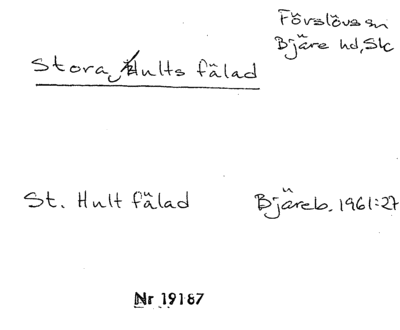 Förslövs sn
Bjäre hd, Sk
Stora Hults fälad
St. Hult fälad Bjäreb. 1961:27
Nr 19187